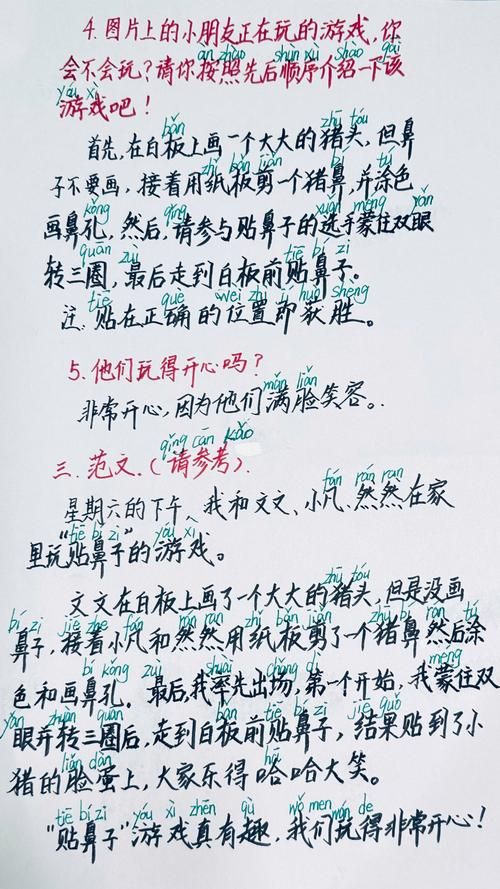 4.图片上的小朋友正在玩的游戏,你
àn zhào shùn xù shào gāi
会不会玩?请你按照先后顺序介绍一下该
yóu xì
游戏吧!
bǎn zhū tóu
首先,在白板上画一个大大的猪头,但鼻
zhǐ bǎn jiǎn bí tú
子不要画,接着用纸板剪一个猪鼻,并涂色
kǒng qǐng xuǎn méng yǎn
画鼻孔,然后,请参与贴鼻子的选手蒙住双眼
quān zuì tiē bí zi
转三圈,最后走到白板前贴鼻子。
tiē què wèi zhì jí huò shèng
注:贴在正确的位置即获胜。
5.他们玩得开心吗?
mǎn liǎn
非常开心,因为他们满脸笑容。
qǐng cān kǎo
三.范文.(请参考).
fán rán ran
星期六的下午、我和文文、小凡、然然在家
tiē bí zi yóu xì
里玩"贴鼻子"的游戏。
zhū tóu
文文在白板上画了一个大大的猪头,但是没画
bí zi jiē zhe fán rán ran zhǐ bǎn jiǎn bí ran tú
鼻子,接着小凡和然然用纸板剪了一个猪鼻然后涂
bí kǒng zuì shuài chǎng dì méng
色和画鼻孔。最后,我率先出场,第一个开始,我蒙住双
yǎn zhuàn quān bǎn tiē bí zi jié guǒ
眼并转三圈后,走到白板前贴鼻子,结果贴到了小
liǎn dàn hā
猪的脸蛋上,大家乐得哈哈大笑。
tiē bí zi yóu xì zhēn qù wǒ men wán de
"贴鼻子"游戏真有趣,我们玩得非常开心!